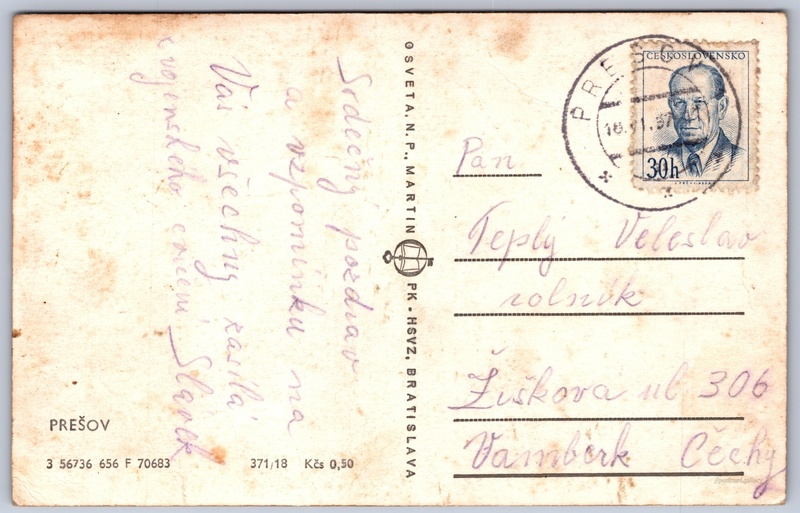 Srdečný pozdrav
a vzpomínku na
Vás všechny zasílá
z vojenského cvičení Slávek
PREŠOV
3 56736 656 F 70683 371/18 Kčs 0,50
OSVETA, N. P., MARTIN PK - HSVZ, BRATISLAVA
ČESKOSLOVENSKO
30h
PREŠOV
Pan
Teplý Veleslav
rolník
Žižkova ul 306
Vamberk Čechy